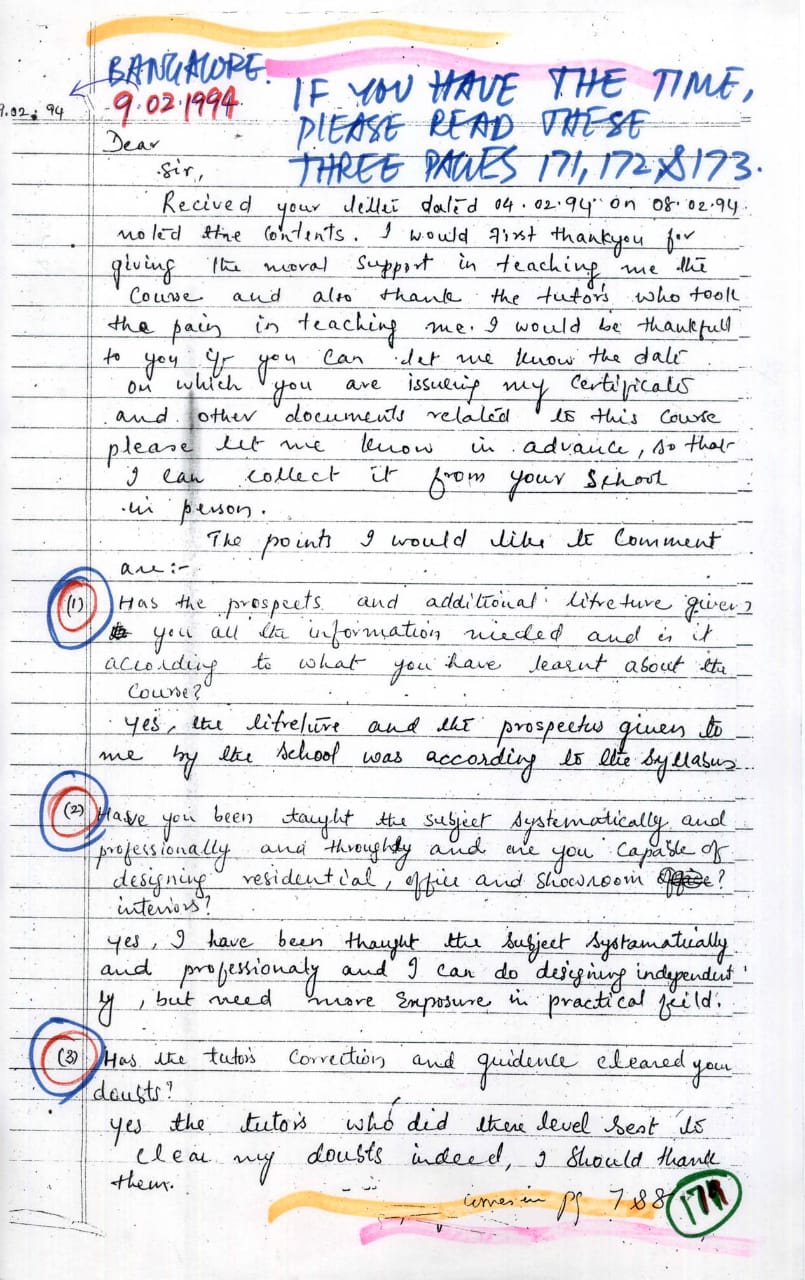 BANGALORE.
9.02.1994
9.02.94
IF YOU HAVE THE TIME,
PLEASE READ THESE
THREE PAGES 171, 172, & 173.
Dear
Sir,
Recived your letter dated 04.02.94 on 08.02.94
noted the contents. I would first thankyou for
giving the moral support in teaching me the
Course and also thank the tutors who took
the pain in teaching me. I would be thankfull
to you if you can let me know the date
on which you are issueing my certificate
and other documents related to this course
please let me know in advance, so that
I can collect it from your School
in person.
The points I would like to Comment
are :-
(1) Has the prospects and additional litreture given
you all the information needed and is it
according to what you have learnt about the
Course?
Yes, the litreture and the prospectus given to
me by the School was according to the Syllabus
(2) Have you been taught the subject systematically and
professionally and throughly and are you capable of
designing residential, office and showroom office?
interiors?
yes, I have been thaught the subject systamatically
and professionaly and I can do designing independent
ly, but need more Exposure in practical feild.
(3) Has the tutors Correction and guidence cleared your
doubts?
yes the tutors who did there level best to
clear my doubts indeed, I should thank
them.
in pg 7&8